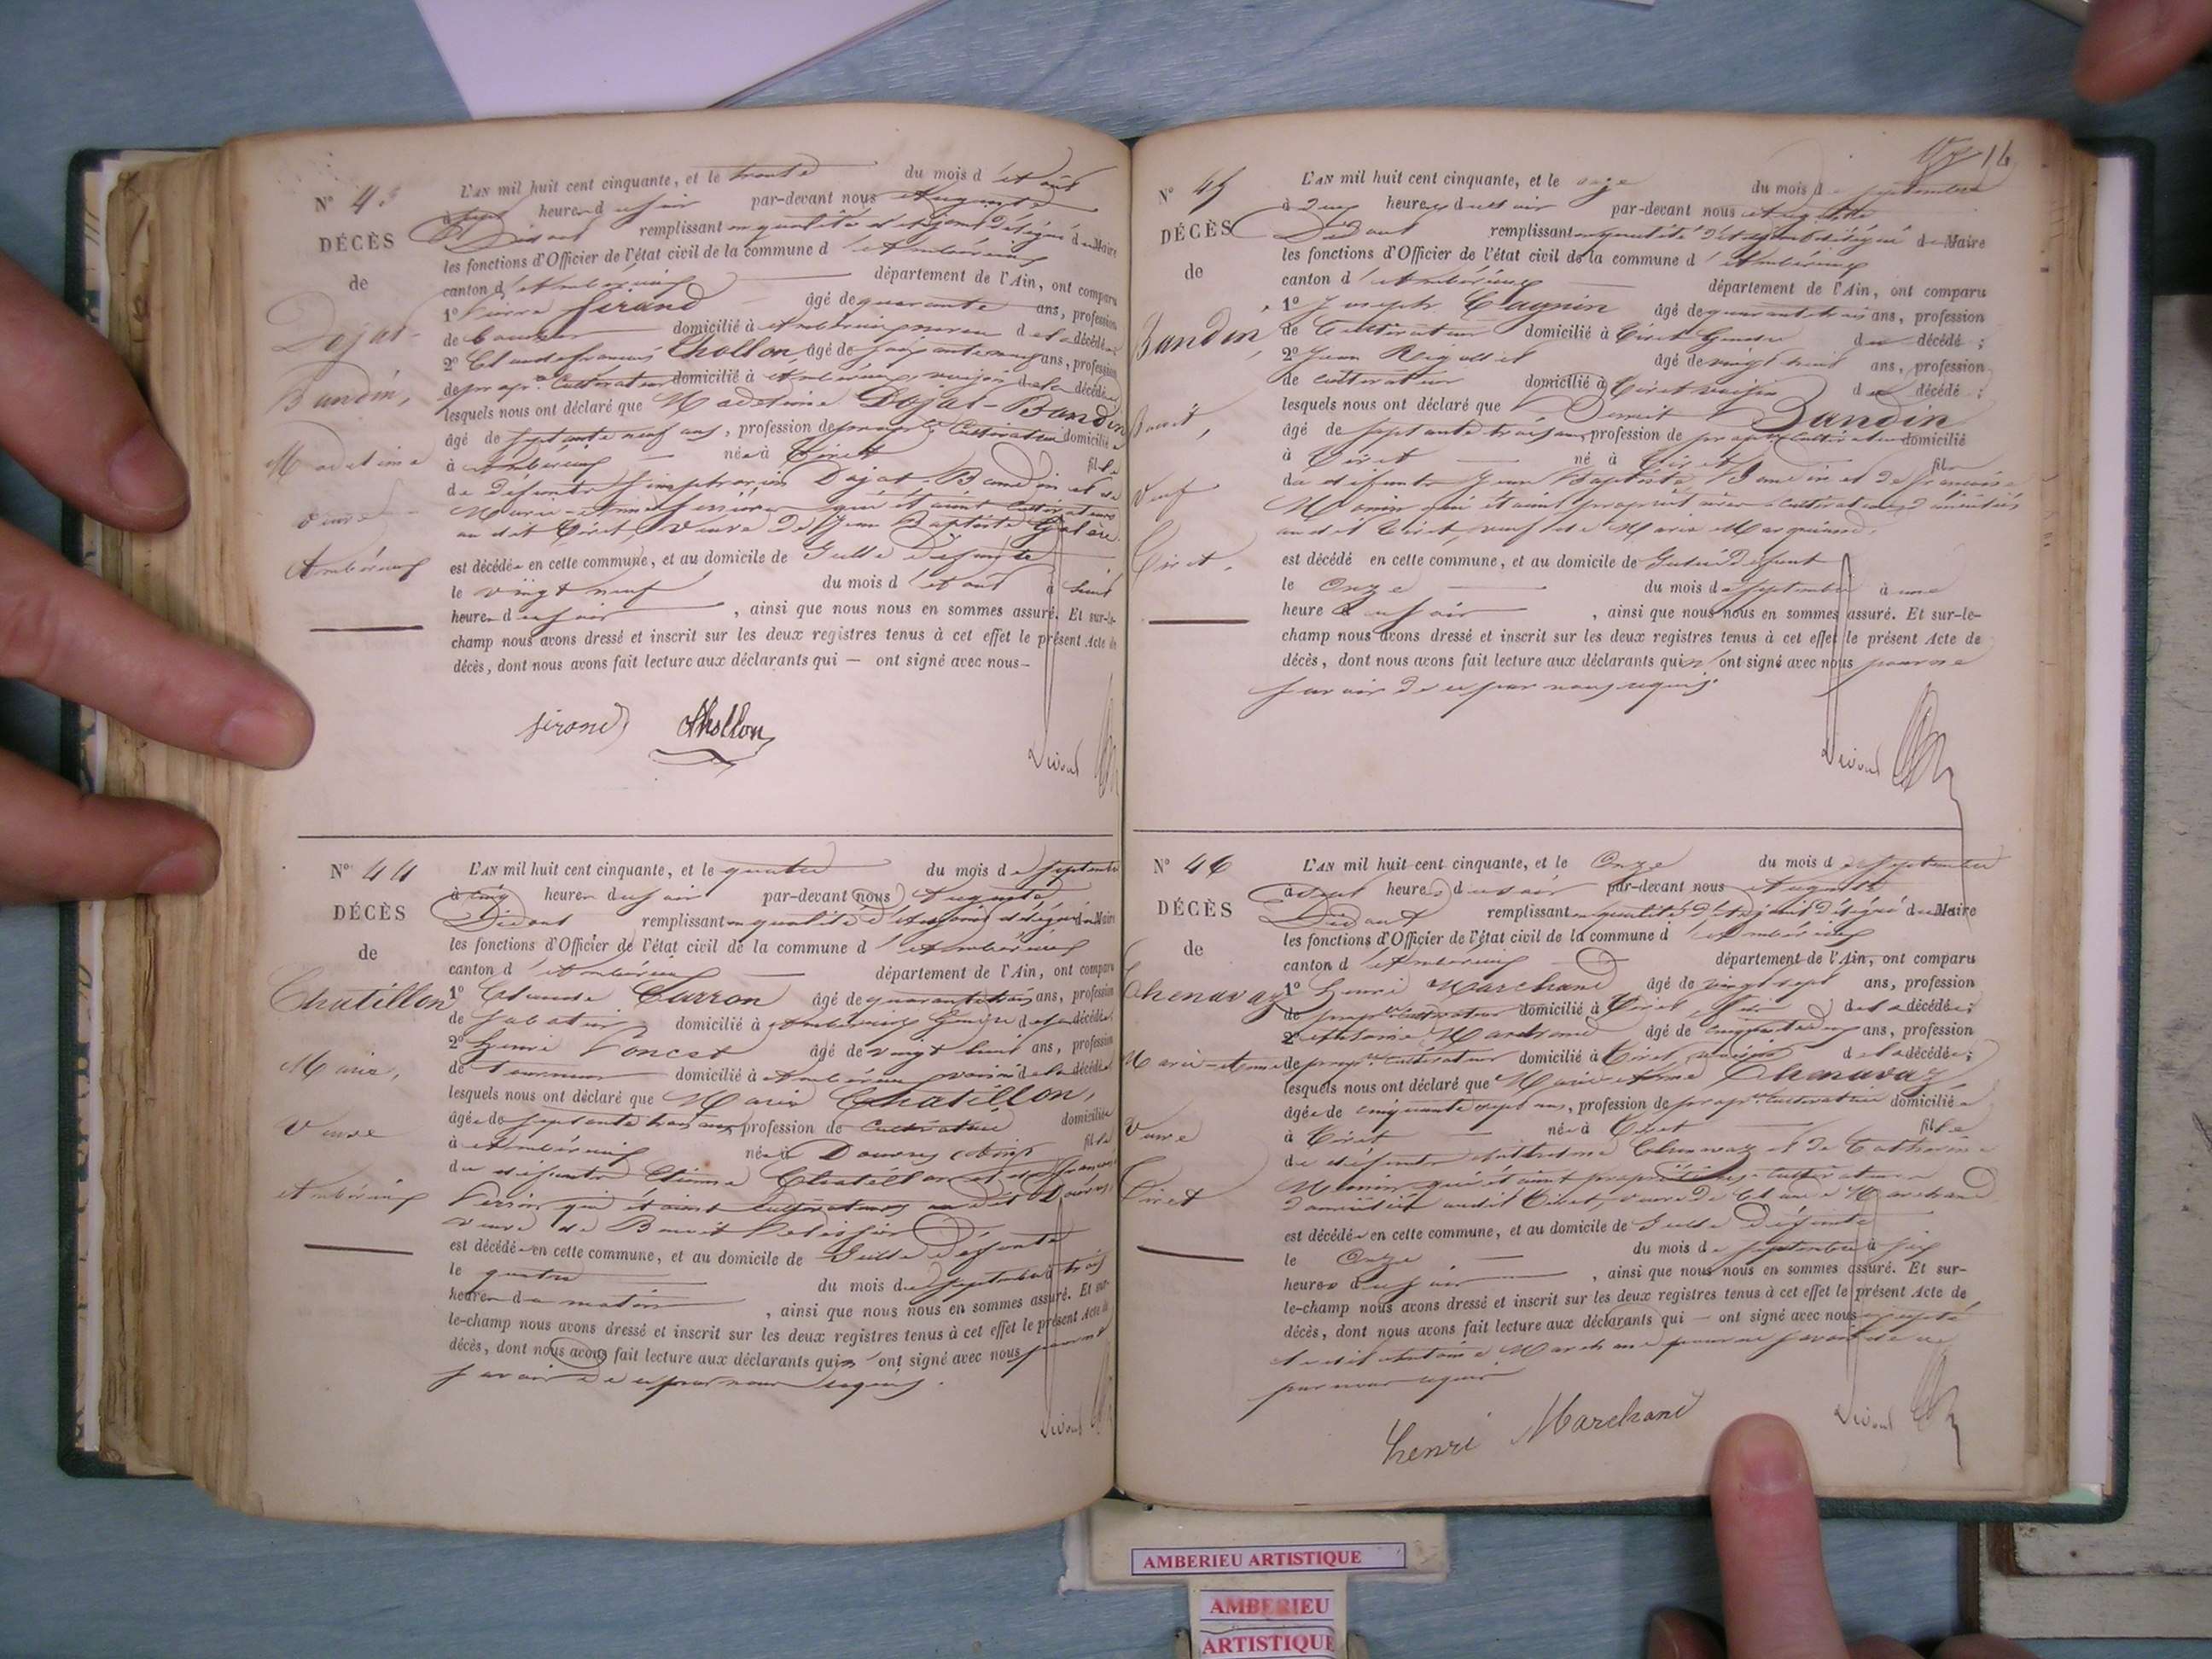 N° 43
DÉCÈS
de
Dojat-
Bandin,
Madeleine
veuve
Ambérieux
L'AN mil huit cent cinquante, et le trente du mois d'Août
à sept heures du soir par-devant nous Auguste
Didout remplissant en qualité d'adjoint délégué du Maire
les fonctions d'Officier de l'état civil de la commune d'Ambérieux
canton d'Ambérieux département de l'Ain, ont comparu
1° Pierre Sirand âgé de quarante ans, profession
de domicilié à Ambérieux neveu de la décédée
2° Claude françois Chollon, âgé de soixante neuf ans, profession
de propr.re Cultivateur domicilié à Ambérieux, voisin de la décédée
lesquels nous ont déclaré que Madeleine Dojat-Bandin
âgée de septante neuf ans, profession de propr.re Cultivatrice domiciliée
à Ambérieux née à Tiret fille
de défunts Dojat-Bandin et de
Marie-Anne qui étaient cultivateurs
au dit Tiret, veuve de Jean Baptiste
est décédée en cette commune, et au domicile de
le vingt neuf du mois d'Août à huit
heures du soir, ainsi que nous nous en sommes assuré. Et sur-le-
champ nous avons dressé et inscrit sur les deux registres tenus à cet effet le présent Acte de
décès, dont nous avons fait lecture aux déclarants qui — ont signé avec nous—
Sirand Chollon
Didout
N° 44
DÉCÈS
de
Chatillon
Marie,
Veuve
Ambérieux
L'AN mil huit cent cinquante, et le quatre du mois de septembre
à cinq heures du soir par-devant nous Auguste
Didout remplissant en qualité d'Adjoint délégué du Maire
les fonctions d'Officier de l'état civil de la commune d'Ambérieux
canton d'Ambérieux département de l'Ain, ont comparu
1° Claude Carron âgé de quarante trois ans, profession
de sabotier domicilié à Ambérieux Gendre de la décédée
2° Henri Poncet âgé de vingt huit ans, profession
de domicilié à Ambérieux voisin de la décédée
lesquels nous ont déclaré que Marie Chatillon,
âgée de septante trois ans, profession de Cultivatrice domiciliée
à Ambérieux née à Douvres (Ain) fille
de défunts Etienne Chatillon et de françoise
Perrin qui étaient cultivateurs au dit Douvres,
veuve de Benoit Pelissier
est décédée en cette commune, et au domicile de
le quatre du mois de septembre à trois
heures du matin, ainsi que nous nous en sommes assuré. Et sur-
le-champ nous avons dressé et inscrit sur les deux registres tenus à cet effet le présent Acte de
décès, dont nous avons fait lecture aux déclarants qui n'ont signé avec nous pour ne
savoir de ce par nous requis.
Didout
14
N° 45
DÉCÈS
de
Bandin,
Benoit,
Veuf
Tiret.
L'AN mil huit cent cinquante, et le onze du mois de septembre
à deux heures du soir par-devant nous Auguste
Didout remplissant en qualité d'Adjoint délégué du Maire
les fonctions d'Officier de l'état civil de la commune d'Ambérieux
canton d'Ambérieux département de l'Ain, ont comparu
1° Joseph Clagnin âgé de quarante trois ans, profession
de Cultivateur domicilié à Tiret Gendre du décédé;
2° Jean âgé de vingt huit ans, profession
de cultivateur domicilié à Tiret voisin du décédé;
lesquels nous ont déclaré que Benoit Bandin
âgé de septante trois ans, profession de propr.re Cultivateur domicilié
à Tiret né à Tiret fils
de défunts Jean Baptiste Bandin et de françoise
Monin qui étaient propriétaires cultivateurs domiciliés
au dit Tiret, veuf de Marie
est décédé en cette commune, et au domicile de
le Onze du mois de septembre à une
heure du soir, ainsi que nous nous en sommes assuré. Et sur-le-
champ nous avons dressé et inscrit sur les deux registres tenus à cet effet le présent Acte de
décès, dont nous avons fait lecture aux déclarants qui n'ont signé avec nous pour ne
savoir de ce par nous requis.
Didout
N° 46
DÉCÈS
de
Chenavaz
Marie-Anne
Veuve
Tiret
L'AN mil huit cent cinquante, et le Onze du mois de septembre
à sept heures du soir par-devant nous Auguste
Didout remplissant en qualité d'Adjoint délégué du Maire
les fonctions d'Officier de l'état civil de la commune d'Ambérieux
canton d'Ambérieux département de l'Ain, ont comparu
1° Henri Marchand âgé de vingt sept ans, profession
de propr.re cultivateur domicilié à Tiret fils de la décédée;
2° Antoine Marchand âgé de cinquante deux ans, profession
de propr.re cultivateur domicilié à Tiret, voisin de la décédée;
lesquels nous ont déclaré que Marie-Anne Chenavaz,
âgée de cinquante sept ans, profession de propr.re cultivatrice domiciliée
à Tiret née à Tiret fille
de défunts Anthelme Chenavaz et de Catherine
Monin qui étaient propriétaires cultivateurs
domiciliés audit Tiret, veuve de Claude Marchand
est décédée en cette commune, et au domicile de
le Onze du mois de septembre à six
heures du soir, ainsi que nous nous en sommes assuré. Et sur-
le-champ nous avons dressé et inscrit sur les deux registres tenus à cet effet le présent Acte de
décès, dont nous avons fait lecture aux déclarants qui — ont signé avec nous excepté
le dit Antoine Marchand pour ne savoir de ce
par nous requis
henri Marchand
Didout
AMBERIEU ARTISTIQUE
AMBERIEU
ARTISTIQUE